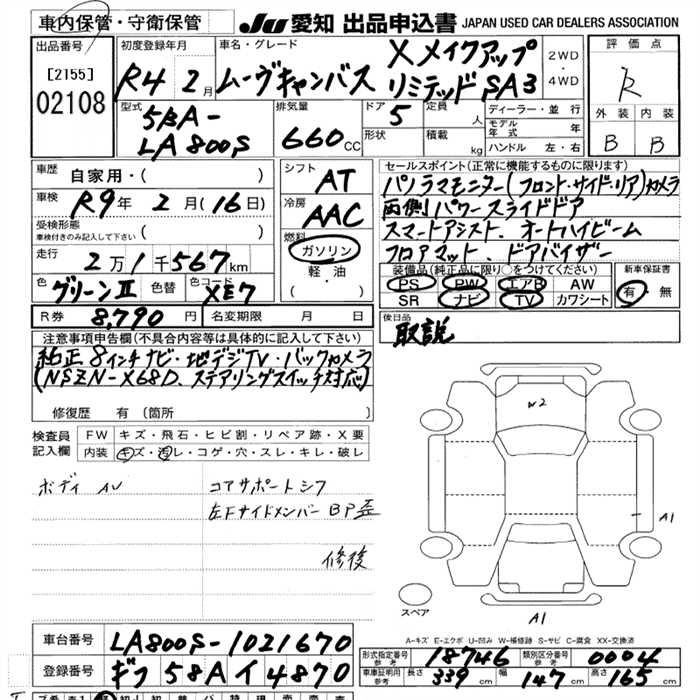 車内保管・守衛保管
JU 愛知 出品申込書 JAPAN USED CAR DEALERS ASSOCIATION
出品番号
[2155]
02108
初度登録年月
R4 2月
車名・グレード
ムーヴキャンバス Xメイクアップ
リミテッド SA3
2WD
・
4WD
評価点
R
外装 内装
B B
型式
5BA-
LA800S
排気量
660cc
ドア 5
形状
定員 人
積載 kg
ディーラー・並行
モデル年式 年
ハンドル 左・右
車歴 自家用・( )
車検 R9年 2月(16日)
受検形態
車検付きのみ記入して下さい ( )
走行 2万1千567km
色 グリーンII 色替 色コード XE7
R券 8,790円 名変期限 月 日
シフト AT
冷房 AAC
燃料
ガソリン
軽・油
( )
セールスポイント(正常に機能するものに限ります)
パノラマモニター(フロント・サイド・リア)カメラ
両側パワースライドドア
スマートアシスト、オートハイビーム
フロアマット、ドアバイザー
装備品(純正品に限り○をつけてください)
PS PW エアB AW
SR ナビ TV カワシート
新車保証書
有・無
後日品
取説
注意事項申告欄(不具合内容等は具体的に記入して下さい)
純正8インチナビ・地デジTV・バックカメラ
(NSZN-X68D、ステアリングスイッチ対応)
修復歴 有(箇所 )
検査員記入欄
FW キズ・飛石・ヒビ割・リペア跡・X要
内装 キズ・汚レ・コゲ・穴・スレ・キレ・破レ
ボディ AU
コアサポートシワ
左Fサイドメンバー BP歪
修復
W2
A1
A1
スペア
A-キズ E-エクボ U-凹み W-補修跡 S-サビ C-腐食 XX-交換済
車台番号 LA800S-1021670
登録番号 ギフ 58A イ 4870
形式指定番号 参考 18746 類別区分番号 参考 0004
車庫証明用 参考 長さ 339cm 幅 147cm 高さ 165cm